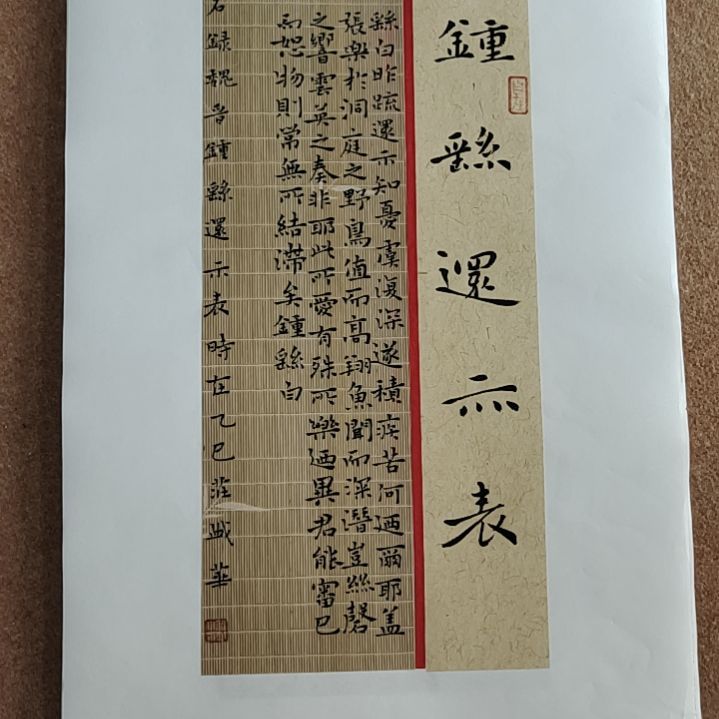 鍾繇還示表
繇白昨疏還示知憂虞復深遂積疾苦何迺爾耶盖
張樂於洞庭之野鳥值而高翔魚聞而深潛豈絲磬
之響雲英之奏非耶此所愛有殊所樂迺異君能審己
而恕物則常無所結滯矣鍾繇白
錄魏晉鍾繇還示表時在乙巳莊華